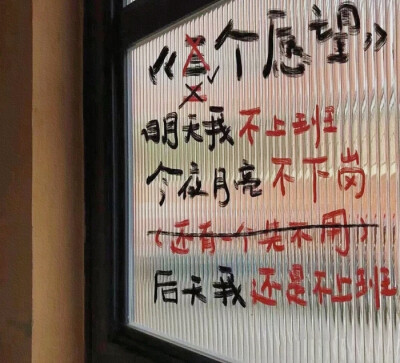 《个愿望》
明天我不上班
今夜月亮不下岗
(还有一个不用)
后天我还是不上班